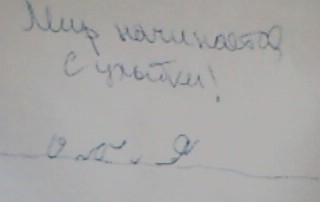 Мир начинается
с улыбки!